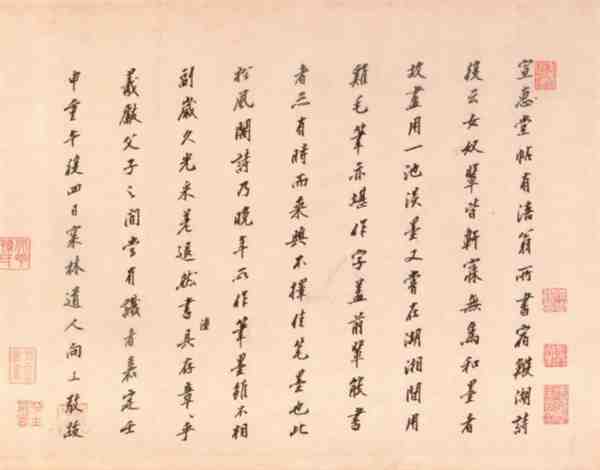 宣惠堂帖有涪翁所書宿鰕湖詩
後云女奴輩皆鼾寐無為和墨者
故盡用一池淡墨又嘗在湖湘間用
雞毛筆亦堪作字蓋前輩能書
者亦有時而乘興不擇佳筆墨也此
松風閣詩乃晚年所作筆墨雖不相
副歲久光采差退然書法具存章〻乎
羲獻父子之間當有識者嘉定壬
申重午後四日寒林道人向水敬跋